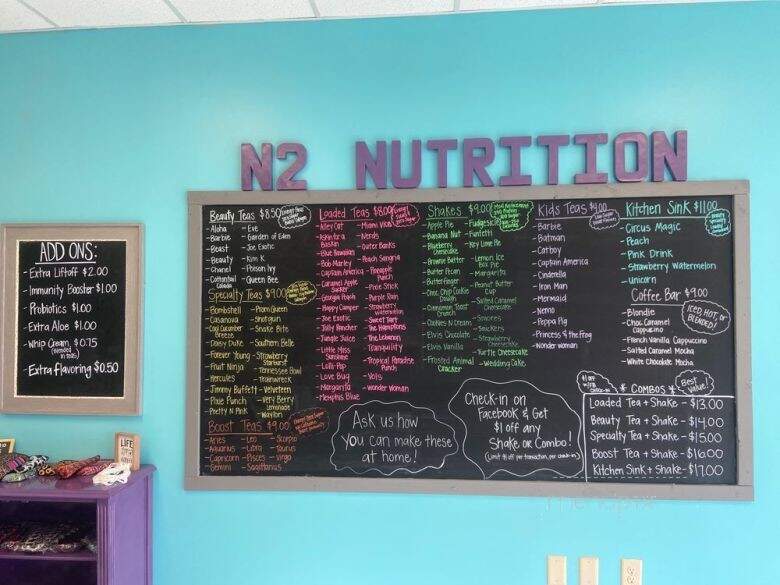 N2 NUTRITION
ADD ONS:
- Extra Liftoff $2.00
- Immunity Booster $1.00
- Probiotics $1.00
- Extra Aloe $1.00
- Whip Cream $0.75
- Extra Flavoring $0.50
LIFE
Beauty Teas $8.50
- Aloha - Eve
- Barbie - Garden of Eden
- Beast - Joe Exotic
- Beauty - Kim K
- Chanel - Poison Ivy
- Cottontail Colada - Queen Bee
Specialty Teas $9.00
- Bombshell - Prom Queen
- Casanova - Shotgun
- Cool Cucumber Breeze - Snake Bite
- Daisy Duke - Southern Belle
- Forever Young - Strawberry Starburst
- Fruit Ninja - Tennessee Bowl
- Hercules - Trainwreck
- Jimmy Buffett - Velveteen
- Pixie Punch - Very Berry Lemonade
- Pretty N Pink - Waylon
Boost Teas $9.00
- Aries - Leo - Scorpio
- Aquarius - Libra - Taurus
- Capricorn - Pisces - Virgo
- Gemini - Sagittarius
Loaded Teas $8.00
- Alley Cat - Miami Vice
- Nerds
- Outer Banks
- Blue Hawaiian
- Bob Marley - Peach Sangria
- Captain America - Pineapple Punch
- Caramel Apple Sucker - Pixie Stick
- Georgia Peach - Purple Rain
- Happy Camper - Strawberry Watermelon
- Joe Exotic - Sweet Tart
- Jolly Rancher - The Hamptons
- Jungle Juice - The Lebanon
- Little Miss Sunshine - Tranquility
- Lolli-Pop - Tropical Paradise Punch
- Love Bug - Vols
- Margarita - Wonder Woman
- Memphis Blue
Shakes $9.00
- Apple Pie - Fudgesicle
- Banana Nut - Funfetti
- Blueberry Cheesecake - Key Lime Pie
- Brownie Batter - Lemon Ice Box Pie
- Butter Pecan - Margarita
- Butterfinger - Peanut Butter Cup
- Choc Chip Cookie Dough - Salted Caramel Cheesecake
- Cinnamon Toast Crunch - Smores
- Cookies N Cream - Snickers
- Elvis Chocolate - Strawberry Cheesecake
- Elvis Vanilla - Turtle Cheesecake
- Frosted Animal Cracker - Wedding Cake
Kids Teas $4.00
- Barbie
- Batman
- Catboy
- Captain America
- Cinderella
- Iron Man
- Mermaid
- Nemo
- Peppa Pig
- Princess & the Frog
- Wonder Woman
Kitchen Sink $11.00
- Circus Magic
- Peach
- Pink Drink
- Strawberry Watermelon
- Unicorn
Coffee Bar $9.00
ICED, HOT, or BLENDED!
- Blondie
- Choc Caramel Cappuccino
- French Vanilla Cappuccino
- Salted Caramel Mocha
- White Chocolate Mocha
* COMBOS *
Best Value!
Loaded Tea + Shake - $13.00
Beauty Tea + Shake - $14.00
Specialty Tea + Shake - $15.00
Boost Tea + Shake - $16.00
Kitchen Sink + Shake - $17.00
Ask us how
you can make these
at home!
Check-in on
Facebook & Get
$1 off any
Shake or Combo!
(Limit $1 off per transaction, per check-in)